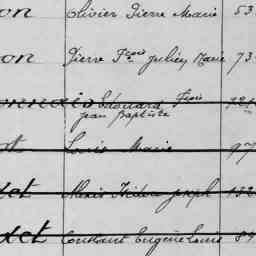 on Olivier Pierre Marie 53
on Pierre Fçois Julien Marie 73
Edouard Fçois
Jean Baptiste
Louis Marie 97
det Alexis Isidore Joseph 132
det Constant Eugène Louis 89